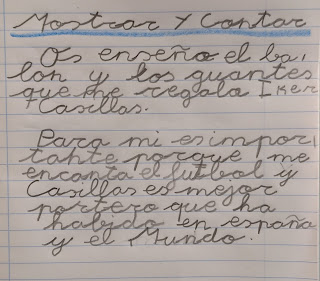 Mostrar y Contar
Os enseño el ba,
lon y los guantes
que me regala Iker
Casillas.
Para mi es impor,
tante porque me
encanta el futbol y
Casillas es mejor
portero que ha
habido en españa
y el Mundo.